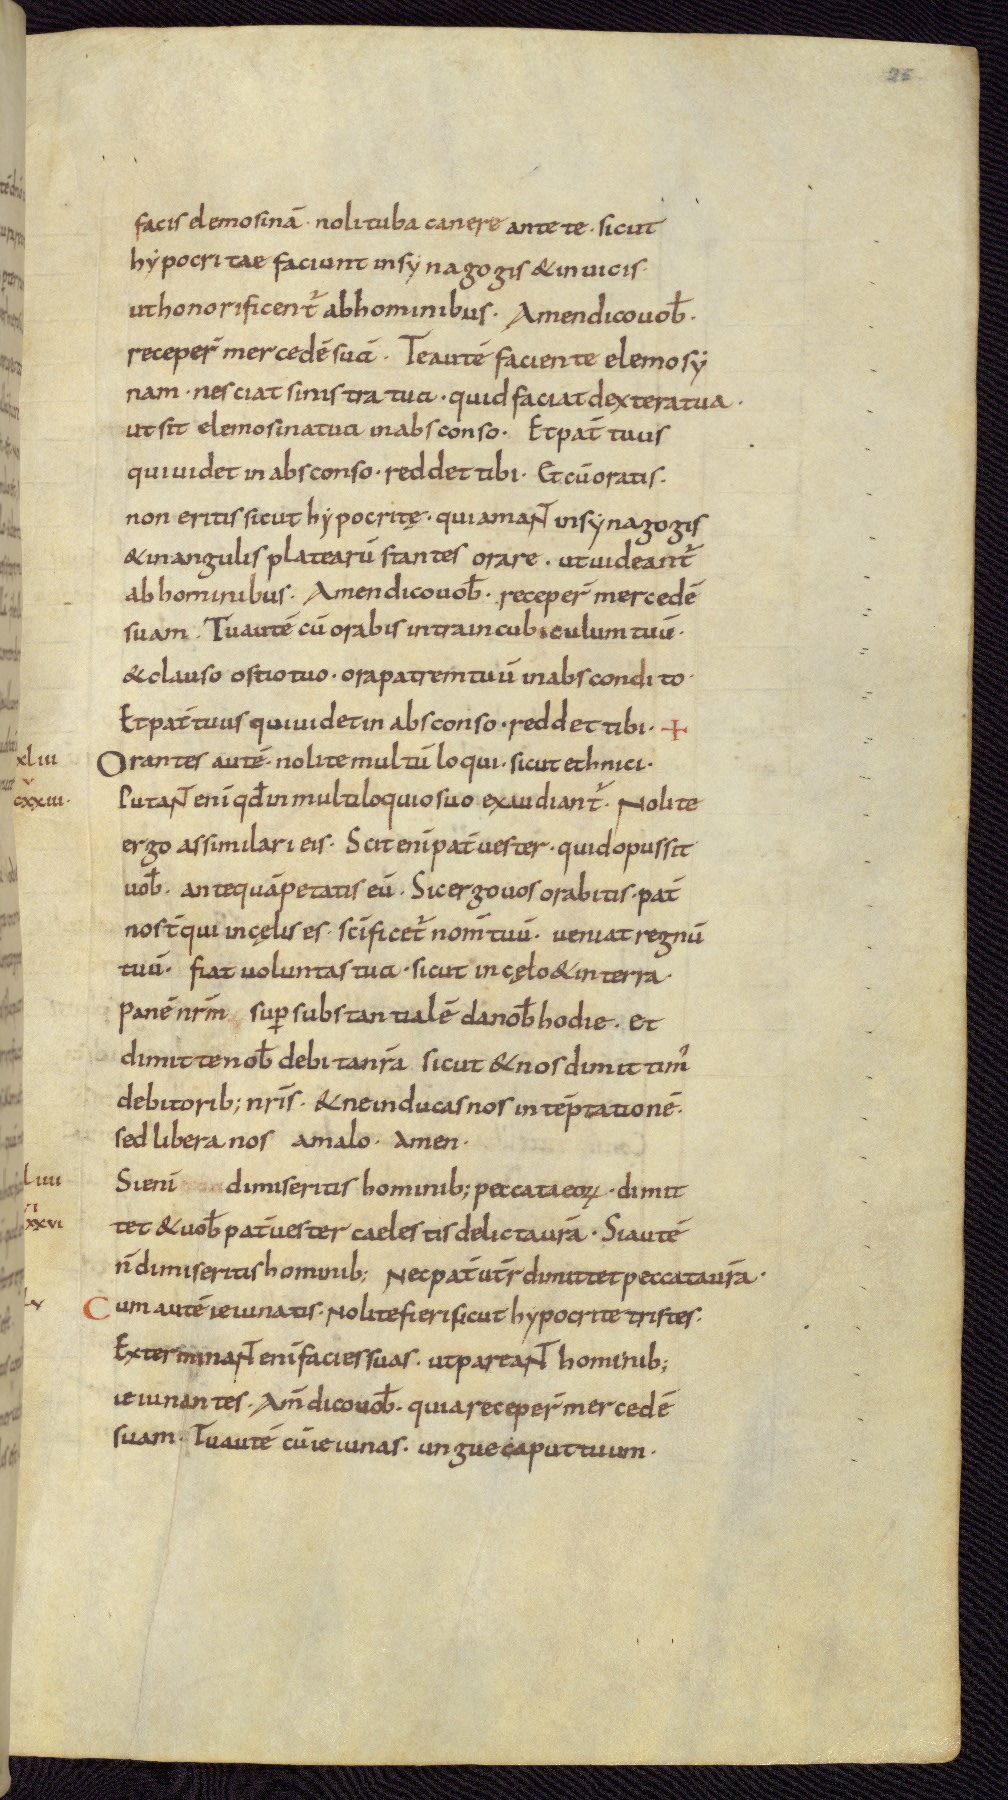 25
facis elemosinā · noli tuba canere ante te · sicut
hẏpocritae faciunt in sẏnagogis & in uicis ·
ut honorificent᷑ ab hominibus · Amen dico uob̄ ·
receper̄ mercedē suā · Te autē faciente elemosẏ
nam · nesciat sinistra tua · quid faciat dextera tua ·
ut sit elemosina tua in absconso · Et pat̄ tuus
qui uidet in absconso · reddet tibi · Et cū oratis ·
non eritis sicut hẏpocritę · qui amant in sẏnagogis
& in angulis platearū stantes orare · ut uideant᷑
ab hominibus · Amen dico uob̄ · receper̄ mercedē
suam · Tu autē cū orabis intra in cubiculum tuū ·
& clauso ostio tuo · ora patrem tuū in abscondito ·
Et pat̄ tuus qui uidet in absconso · reddet tibi · +
xliii Orantes autē · nolite multū loqui · sicut ethnici ·
v cxxiii · Putant eni qd̄ in multiloquio suo exaudiant᷑ · Nolite
ergo assimilari eis · Scit eni pat̄ uester · quid opus sit
uob̄ · antequā petatis eū · Sic ergo uos orabitis · pat̄
nost̄ qui in cęlis es · scificet᷑ nom̄ tuū · ueniat regnū
tuū · fiat uoluntas tua · sicut in cęlo & in terra ·
Panē nrm̄ suꝑsubstantialē da nob̄ hodie · et
dimitte nob̄ debita nrā sicut & nos dimittim᷒
debitorib; nrīs · & ne inducas nos in tēptationē ·
sed libera nos a malo · Amen ·
liiii Si eni dimiseritis hominib; peccata eoꝝ · dimit
vi xxvi tet & uob̄ pat̄ uester caelestis delicta urā · Si autē
n̄ dimiseritis hominib; Nec pat̄ ūtr dimittet peccata urā ·
lv Cum autē ieiunatis · Nolite fieri sicut hẏpocrite tristes ·
Exterminant eni facies suas · ut pareant hominib;
ieiunantes · Am̄ dico uob̄ · quia receper̄ mercedē
suam · Tu autē cū ieiunas · ungue caput tuum ·